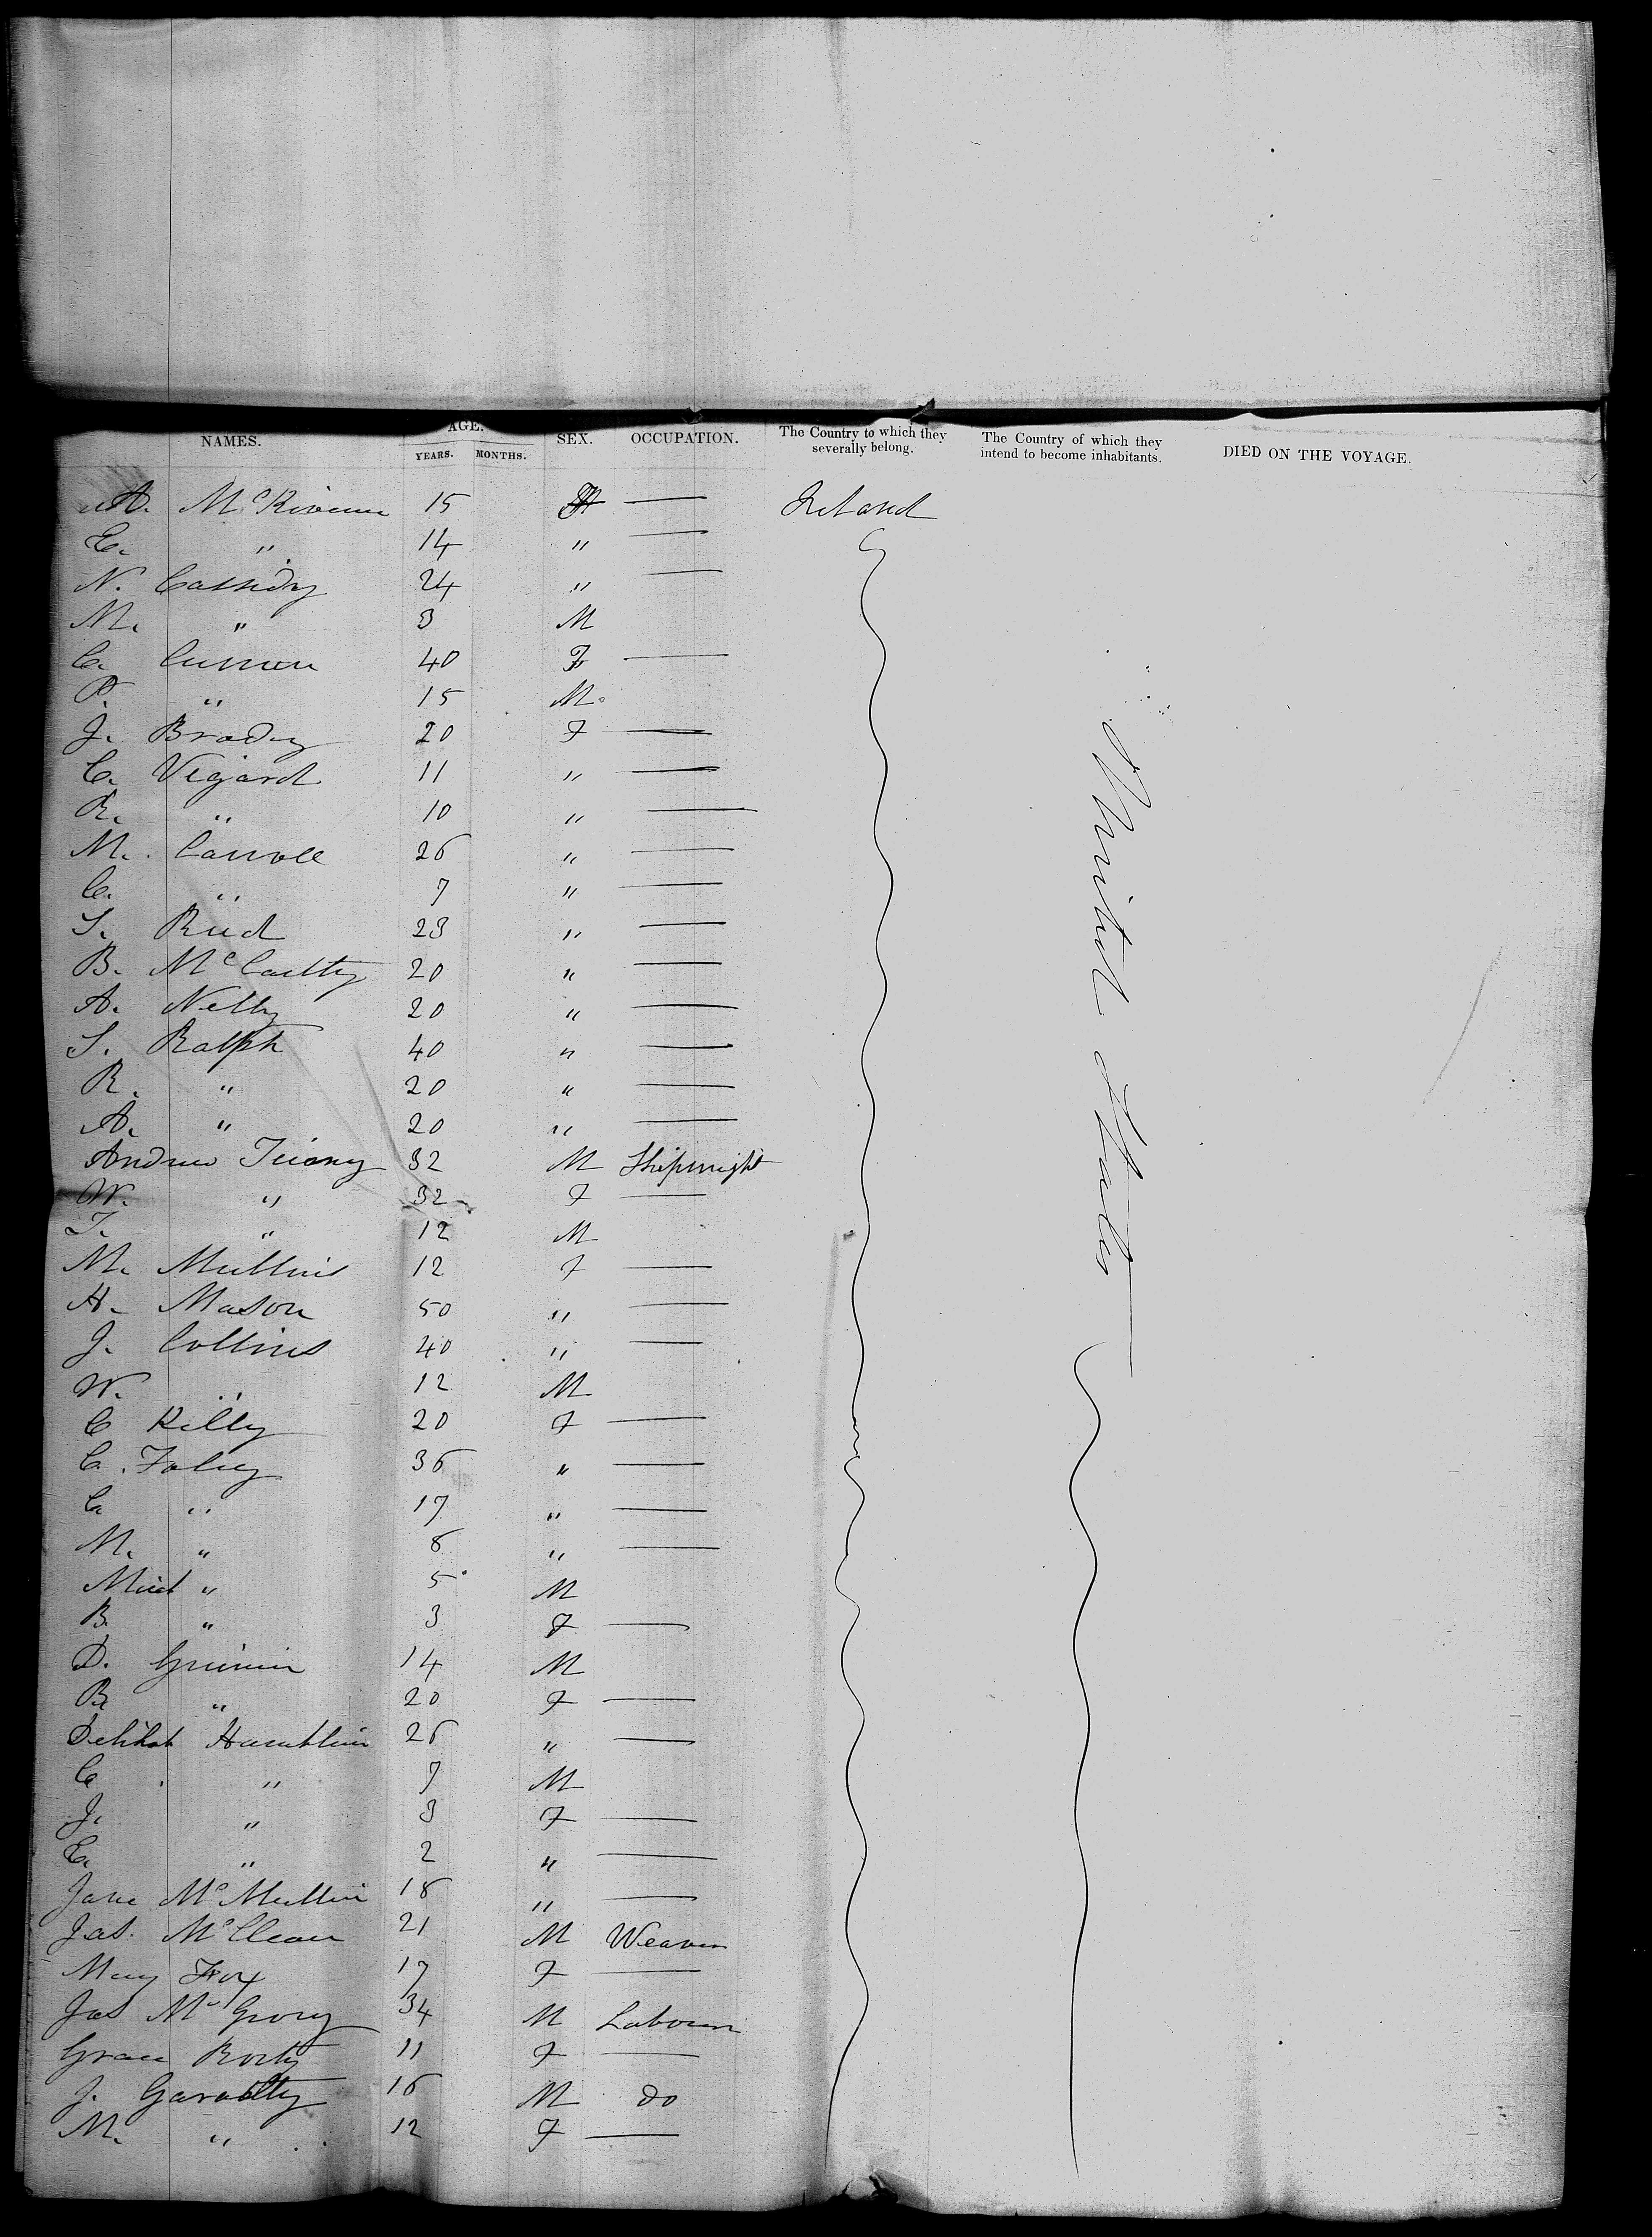 NAMES. AGE. SEX. OCCUPATION. The Country to which they severally belong. The Country of which they intend to become inhabitants. DIED ON THE VOYAGE.
YEARS. MONTHS.
A. 15 F — Ireland
E. " 14 " —
N. Cassidy 24 " —
M. " 3 M
C. Curren 40 F —
P. " 15 M.
J. Brady 20 F —
C. Vegard 11 " —
R. " 10 " —
M. Carroll 26 " —
C. " 7 " —
S. Reid 23 " —
B. McCarthy 20 " —
A. Nelly 20 " —
S. Ralph 40 " —
R. " 20 " —
A. " 20 " —
Andrew 32 M Shipwright
W. " 32 F —
T. " 12 M
M. Mullins 12 F —
H. Mason 50 " —
J. Collins 40 " —
W. " 12 M
C Killy 20 F —
C. Foley 36 " —
C. " 17 " —
M. " 8 " —
Mich " 5 M
B " 3 F —
D. 14 M
B " 20 F —
Delilah Hamblin 26 " —
C " 7 M
J. " 3 F —
E. " 2 " —
Jane McMullin 18 " —
Jas. McClean 21 M Weaver
Mary Fox 17 F —
Jas McGrory 34 M Labourer
Grace 11 F —
J. Garaghty 16 M do
M. " 12 F —
United States